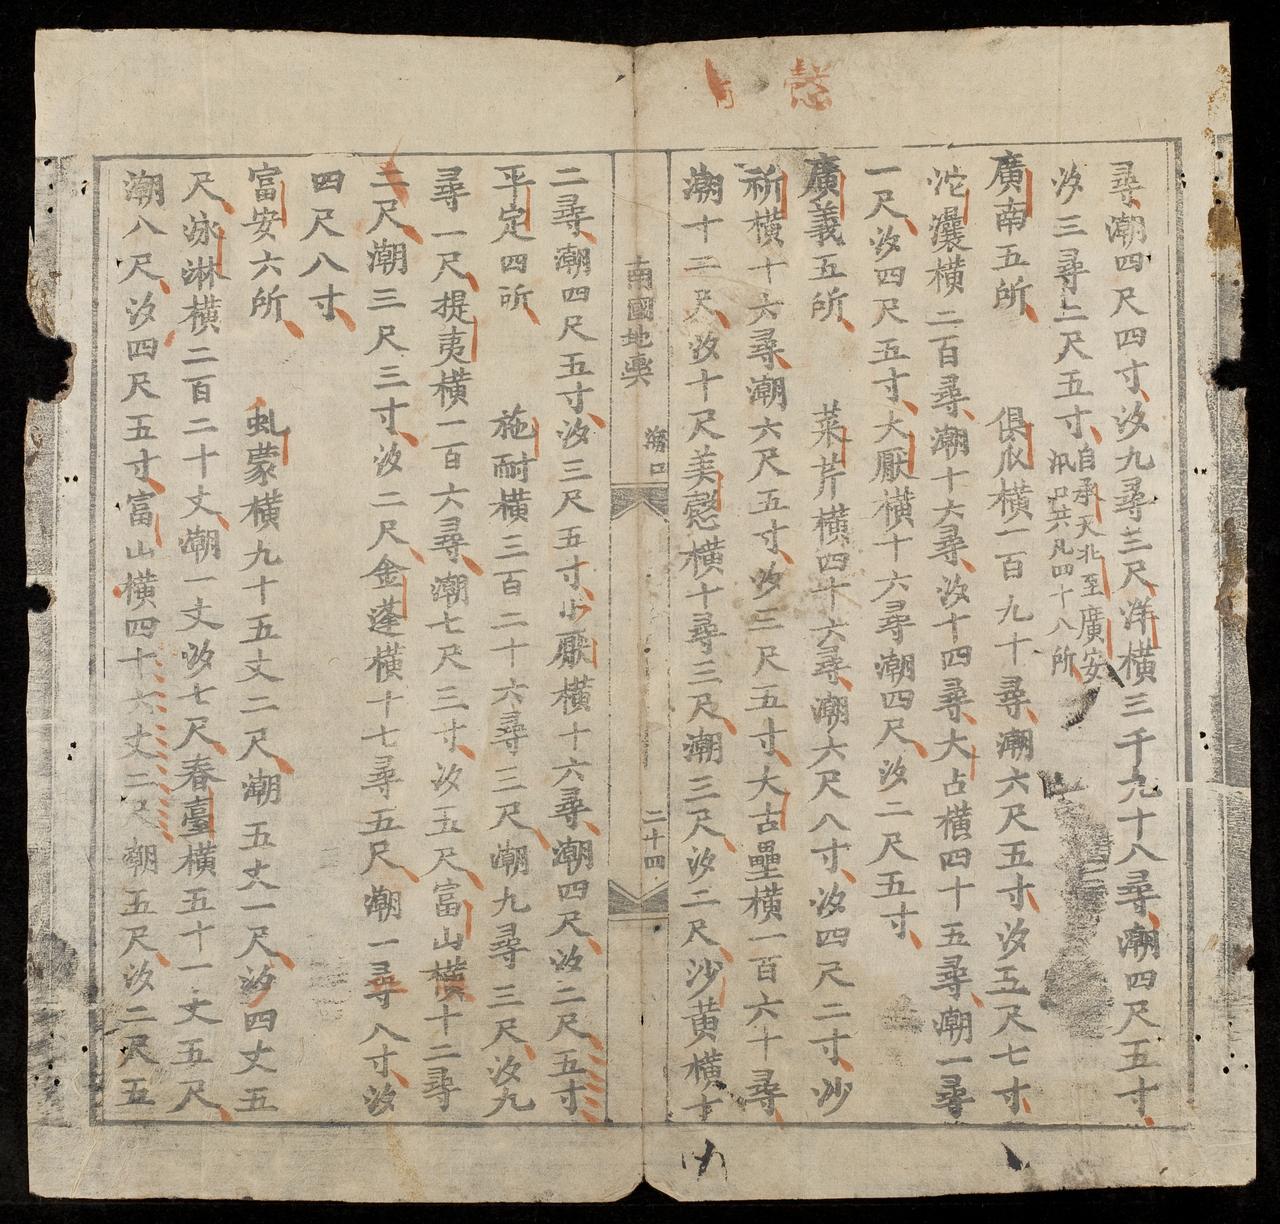 尋潮四尺四寸汐九尋三尺洋橫三千九十八尋潮四尺五寸
汐三尋二尺五寸自承天北至廣安
汛口共凡四十八所
廣南五所 俱瓜橫一百九十尋潮六尺五寸汐五尺七寸
沱瀼橫二百尋潮十六尋汐十四尋大占橫四十五尋潮一尋
一尺汐四尺五寸大厭橫十六尋潮四尺汐二尺五寸
廣義五所 菜芹橫四十六尋潮六尺八寸汐四尺二寸沙
祈橫十六尋潮六尺五寸汐二尺五寸大古壘橫一百六十尋
潮十二尺汐十尺美憖橫十尋三尺潮三尺汐二尺沙黃橫十
南國地輿
海口
二十四
二尋潮四尺五寸汐三尺五寸小厭橫十六尋潮四尺汐二尺五寸
平定四所 施耐橫三百二十六尋三尺潮九尋三尺汐九
尋一尺提夷橫一百六尋潮七尺三寸汐五尺富山橫十二尋
二尺潮三尺三寸汐二尺金蓬橫十七尋五尺潮一尋八寸汐
四尺八寸
富安六所 虬蒙橫九十五丈二尺潮五丈一尺汐四丈五
尺泳淋橫二百二十丈潮一丈汐七尺春臺橫五十一丈五尺
潮八尺汐四尺五寸富山橫四十六丈二尺潮五尺汐二尺五